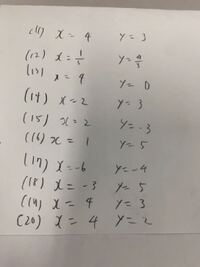 (11) x = 4 y = 3
(12) x = 1/3 y = 4/3
(13) x = 9 y = 0
(14) x = 2 y = 3
(15) x = 2 y = -3
(16) x = 1 y = 5
(17) x = -6 y = -4
(18) x = -3 y = 5
(19) x = 4 y = 3
(20) x = 4 y = 2